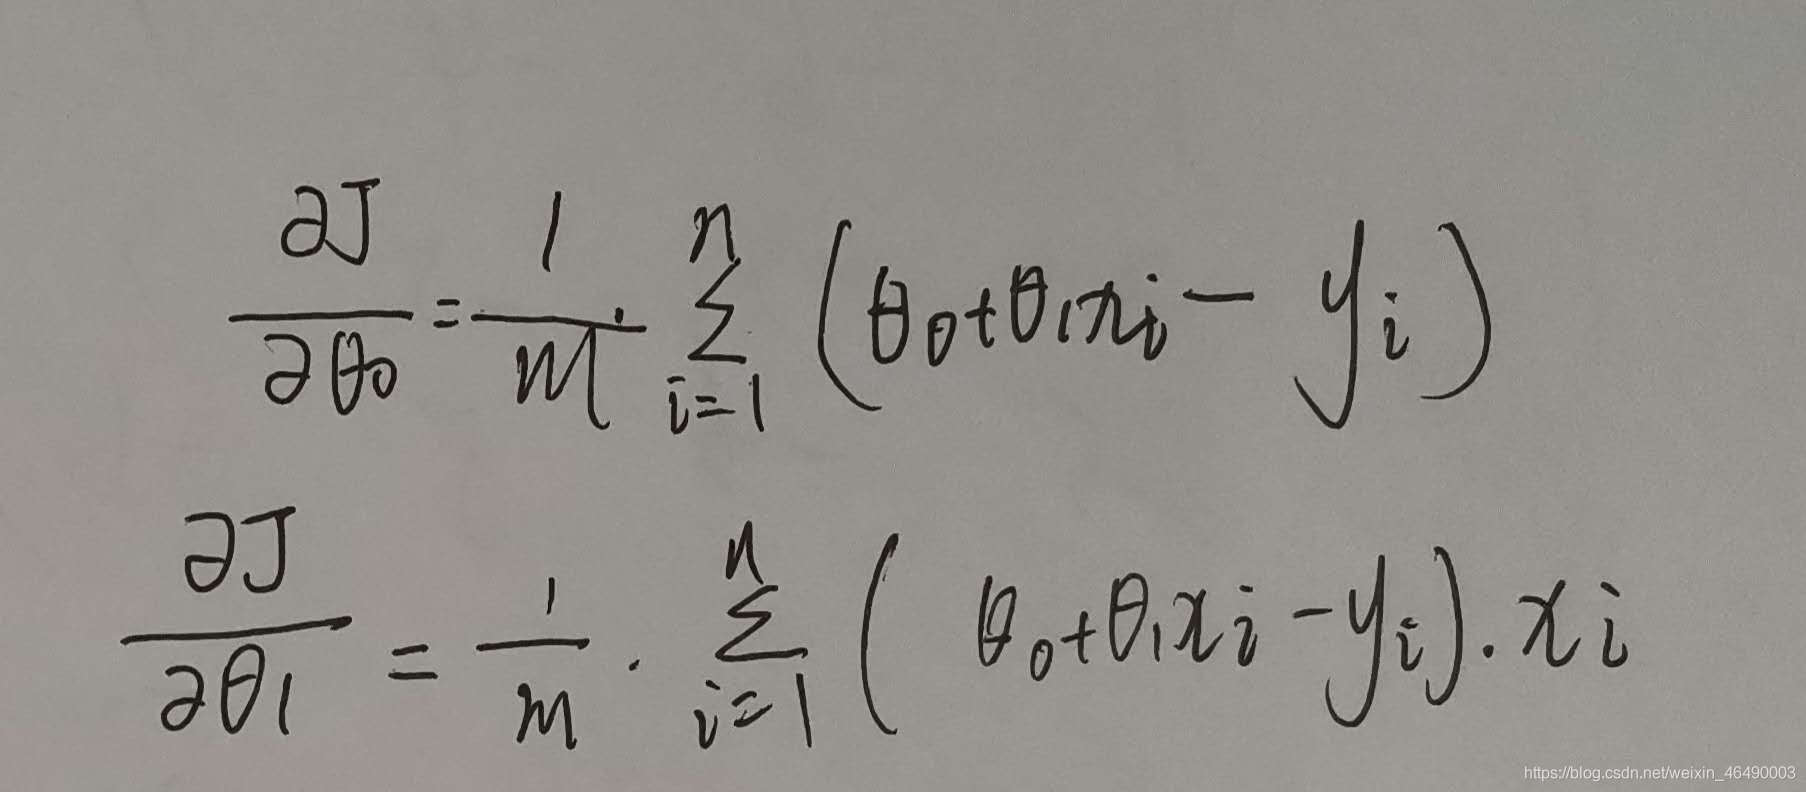 ∂J/∂θ₀ = 1/m · ∑_{i=1}^{n} (θ₀+θ₁xᵢ − yᵢ)
∂J/∂θ₁ = 1/m · ∑_{i=1}^{n} (θ₀+θ₁xᵢ − yᵢ) · xᵢ
https://blog.csdn.net/weixin_46490003